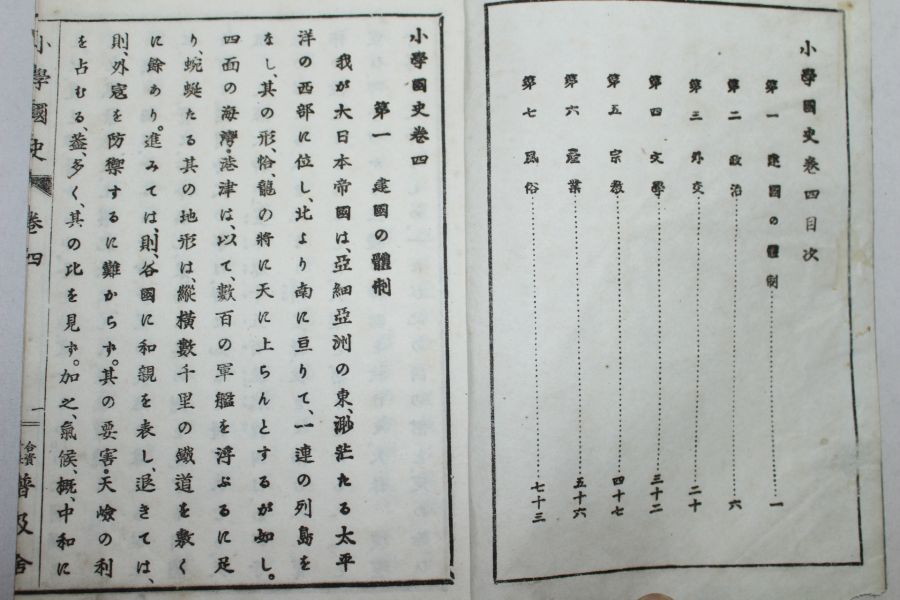 小學國史卷四目次
第一 建國の體制……一
第二 政治……六
第三 外交……二十
第四 文學……三十二
第五 宗教……四十七
第六 產業……五十六
第七 風俗……七十三
小學國史卷四
第一 建國の體制
我が大日本帝國は、亞細亞洲の東、渺茫たる太平
洋の西部に位し、北より南に亘りて、一連の列島を
なし、其の形、恰、龍の將に天に上らんとするが如し。
四面の海灣・港津は、以て、數百の軍艦を浮ぶるに足
り、蜿蜒たる其の地形は、縱橫數千里の鐵道を敷く
に餘あり。進みては、則、各國に和親を表し、退きては、
則、外寇を防禦するに難からず。其の要害・天險の利
を占むる、蓋、多く、其の比を見ず。加之、氣候、概、中和に
小學國史 卷四 一 合資 普及舍